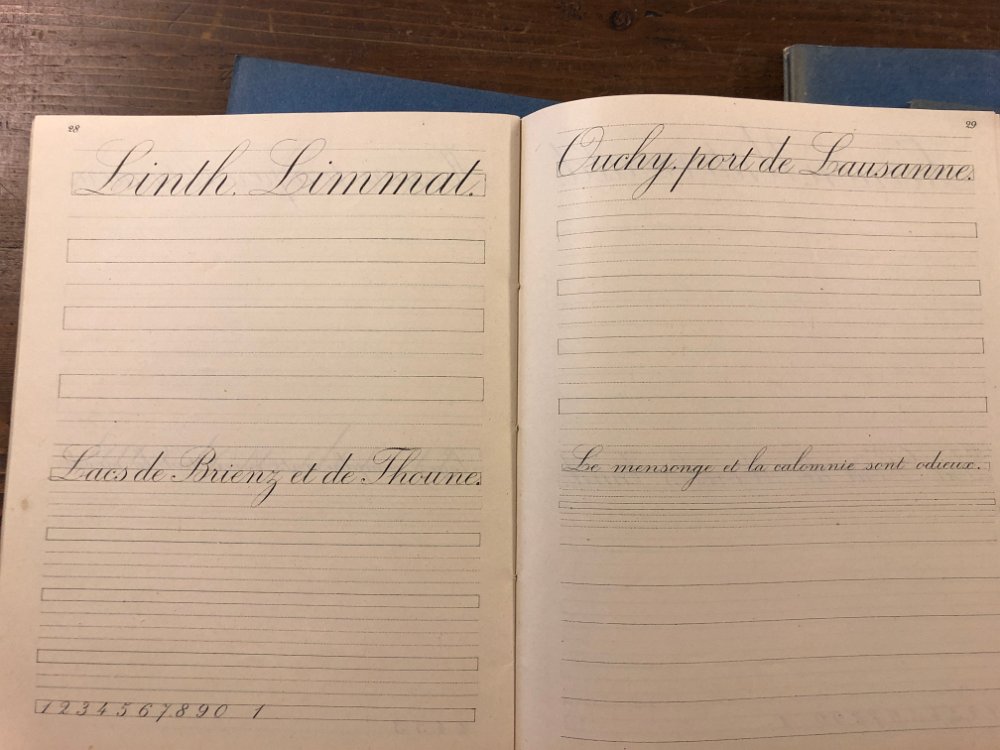 28
Linth. Limmat.
Lacs de Brienz et de Thoune.
1 2 3 4 5 6 7 8 9 0 1
29
Ouchy, port de Lausanne.
Le mensonge et la calomnie sont odieux.